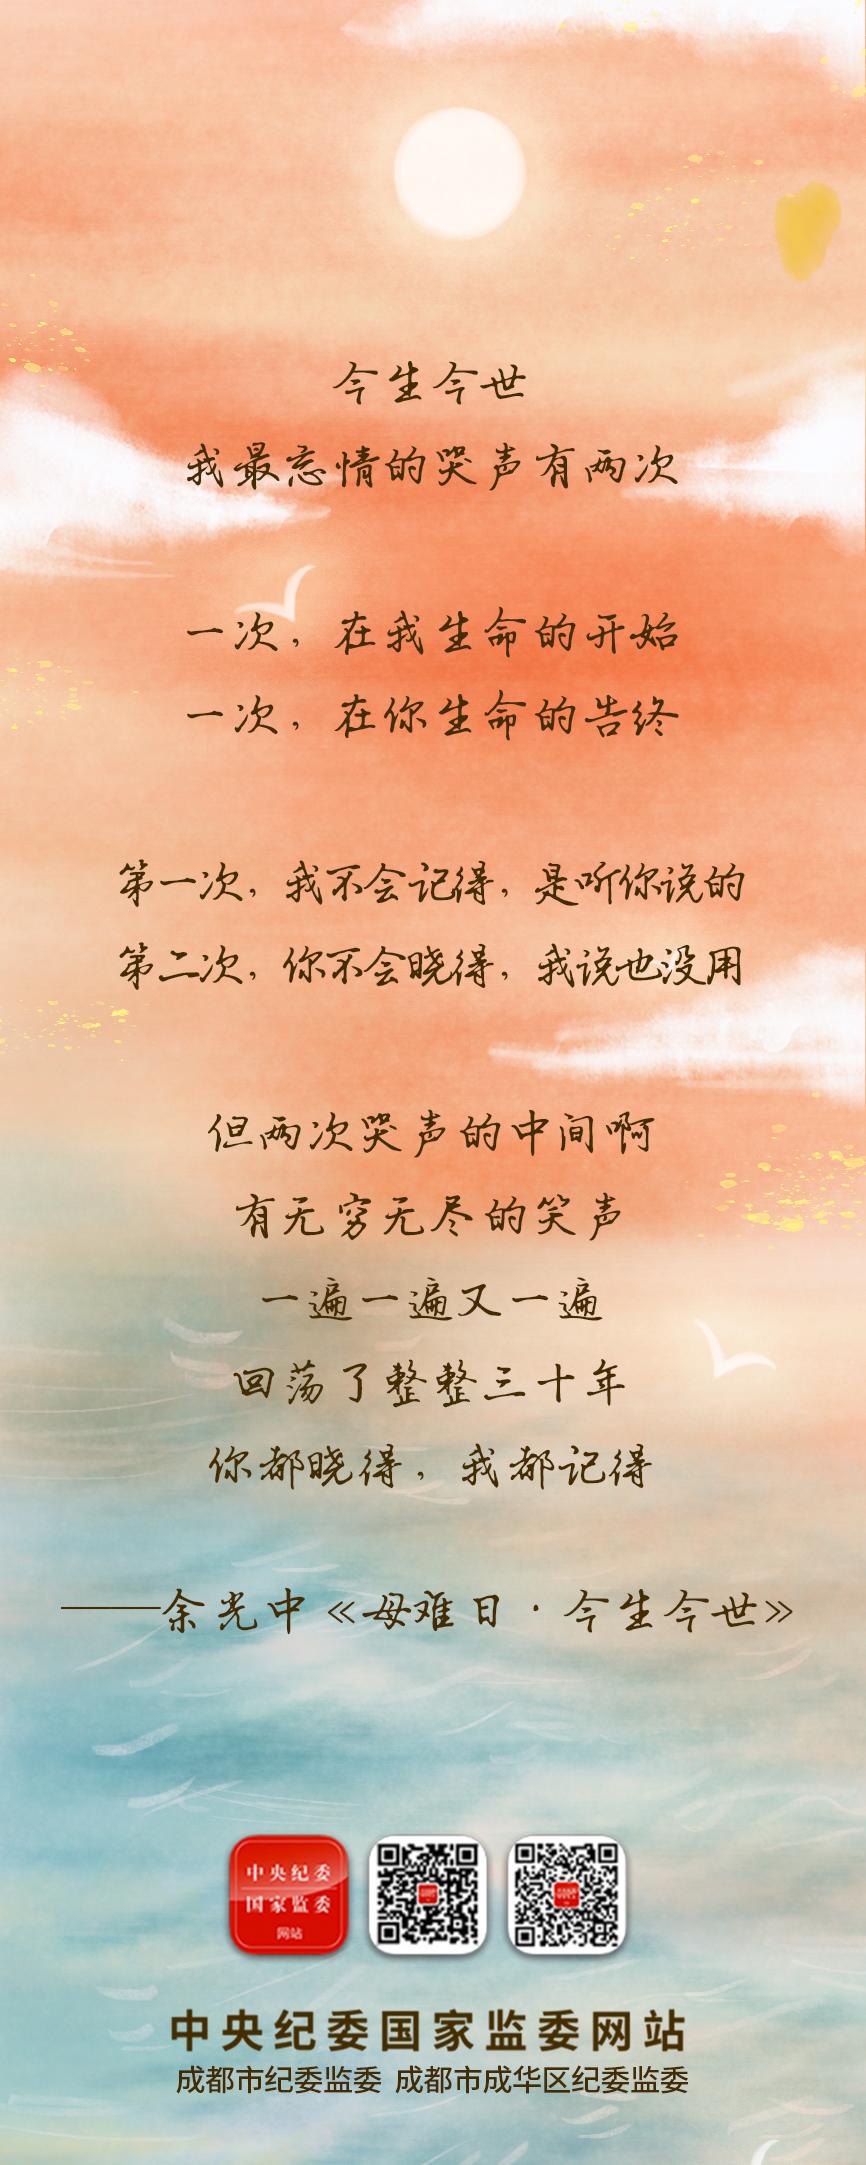 今生今世
我最忘情的哭声有两次
一次，在我生命的开始
一次，在你生命的告终
第一次，我不会记得，是听你说的
第二次，你不会晓得，我说也没用
但两次哭声的中间啊
有无穷无尽的笑声
一遍一遍又一遍
回荡了整整三十年
你都晓得，我都记得
——余光中《母难日·今生今世》
中央纪委
国家监委
网站
中央纪委国家监委网站
成都市纪委监委 成都市成华区纪委监委